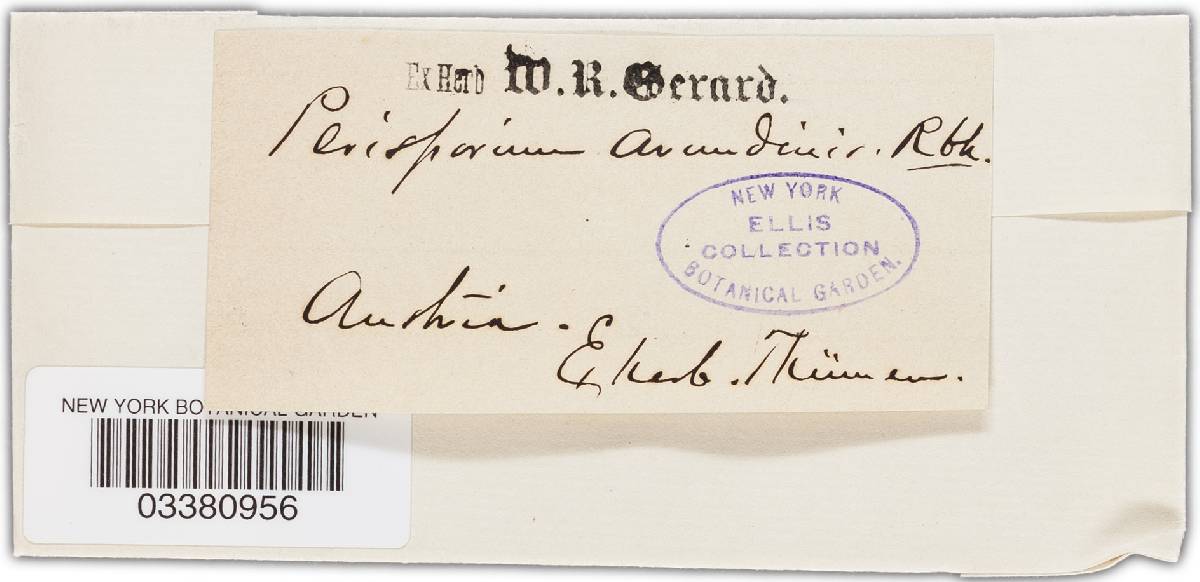 Ex Herb W. R. Gerard.
Perisporium arundinis. Rbh.
NEW YORK
ELLIS
COLLECTION
BOTANICAL GARDEN.
Austria.
E herb. Thümen.
NEW YORK BOTANICAL GARDEN
03380956